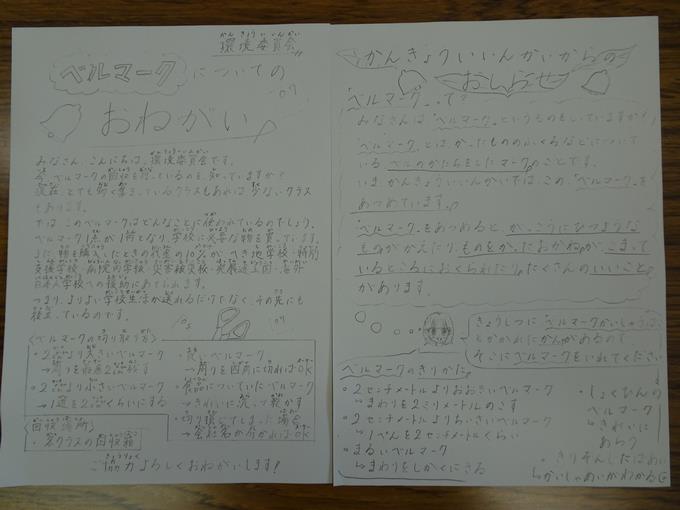 環境委員会
ベルマークについての
おねがい
みなさん、こんにちは。環境委員会です。
今、ベルマークの回収を行っているのを、知っていますか?
現在、とても多く集まっているクラスもあれば、少ないクラス
もあります。
では、このベルマークはどんなことに使われているのでしょう。
ベルマーク1点が1円となり、学校に必要な物を買っています。
また物を購入したときの代金の10%が、へき地学校・特別
支援学校・病院内学校・災害被災校・発展途上国・海外
日本人学校への援助にあてられます。
つまり、よりよい学校生活が送れるだけでなく、その先にも
役立っているのです。
〈ベルマークの切り取り方〉
・2cmより大きいベルマーク
→周りを2mm残す
・2cmより小さいベルマーク
→1辺を2cmくらいにする
・丸いベルマーク
→周りを四角に切ればOK
・食品についていたベルマーク
→きれいに洗って乾かす
・切り損じてしまった場合
→会社名が分かればOK
回収場所
・各クラスの回収箱
ご協力よろしくおねがいします!
かんきょういいんかいからの
おしらせ
「ベルマーク」って?
みなさんは「ベルマーク」というものをしっていますか?
「ベルマーク」とは、かったもののふくろなどについて
いる ベルのかたちをしたマークのことです。
いま、かんきょういいんかいでは、この「ベルマーク」を
あつめています。
「ベルマーク」をあつめると、がっこうにひつような
ものがかえたり、ものをかったおかねが、こまって
いるところにおくられたり、たくさんのいいこと
があります。
きょうしつに「ベルマークかいしゅう」
とかかれたかんがあるので
そこにベルマークをいれてください
ベルマークのきりかた
・2センチメートルよりおおきいベルマーク
→まわりを2ミリメートルのこす
・2センチメートルよりちいさいベルマーク
→1ぺんを2センチメートルくらい
・まるいベルマーク
→まわりをしかくにきる
・しょくひんの
ベルマーク
→きれいに
あらう
・きりそんじたばあい